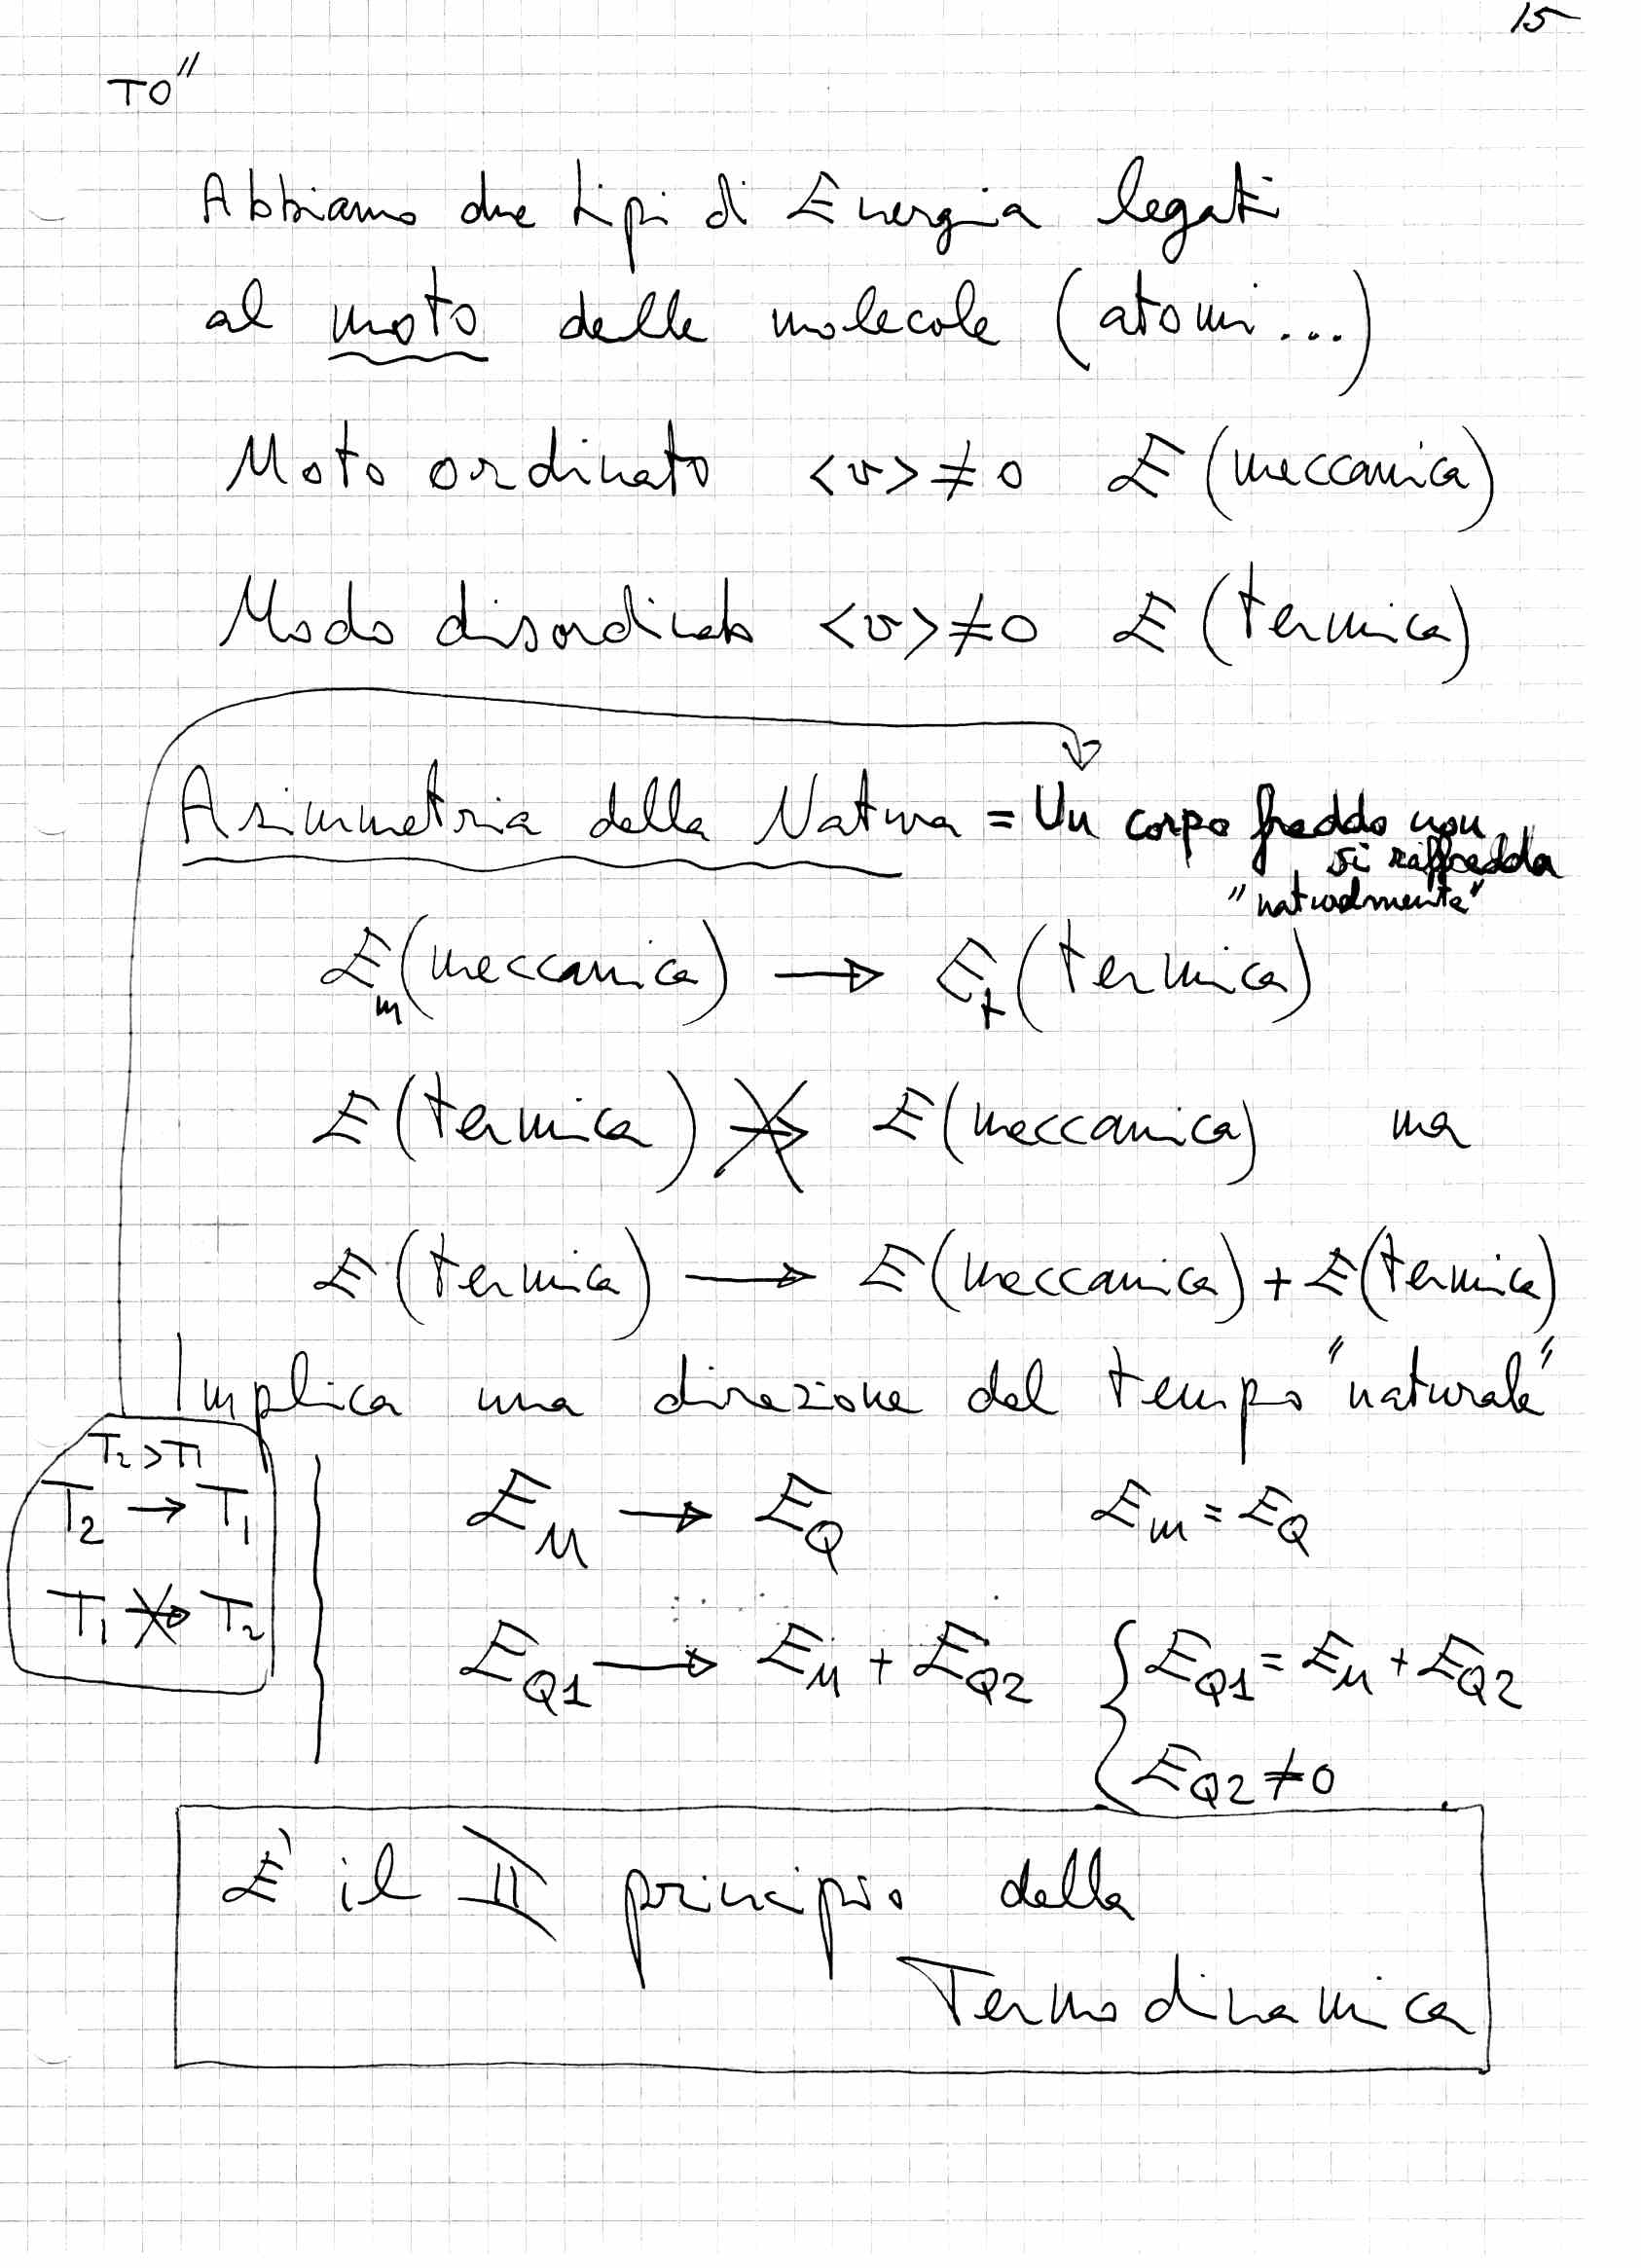 15
TO"
Abbiamo due tipi di Energia legati
al moto delle molecole (atomi...)
Moto ordinato <v>≠0 E (meccanica)
Modo disordinato <v>≠0 E (termica)
Asimmetria della Natura = Un corpo freddo non
si raffredda
"naturalmente"
E_m (meccanica) → E_t (termica)
E (termica) ↛ E (meccanica) ma
E (termica) → E (meccanica) + E (termica)
Implica una direzione del tempo "naturale"
T_2 > T_1
T_2 → T_1
T_1 ↛ T_2
E_M → E_Q E_m = E_Q
E_Q1 → E_M + E_Q2 { E_Q1 = E_M + E_Q2
E_Q2 ≠ 0
E' il II principio della
Termodinamica